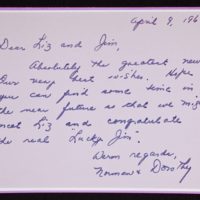 April 9, 196
Dear Liz and Jim,
Absolutely the greatest new
Our very best wishes. Hope
you can find some time in
the near future so that we mig
meet Liz and congratulate
the real "Lucky Jim".
Warm regards,
Norman & Dorothy